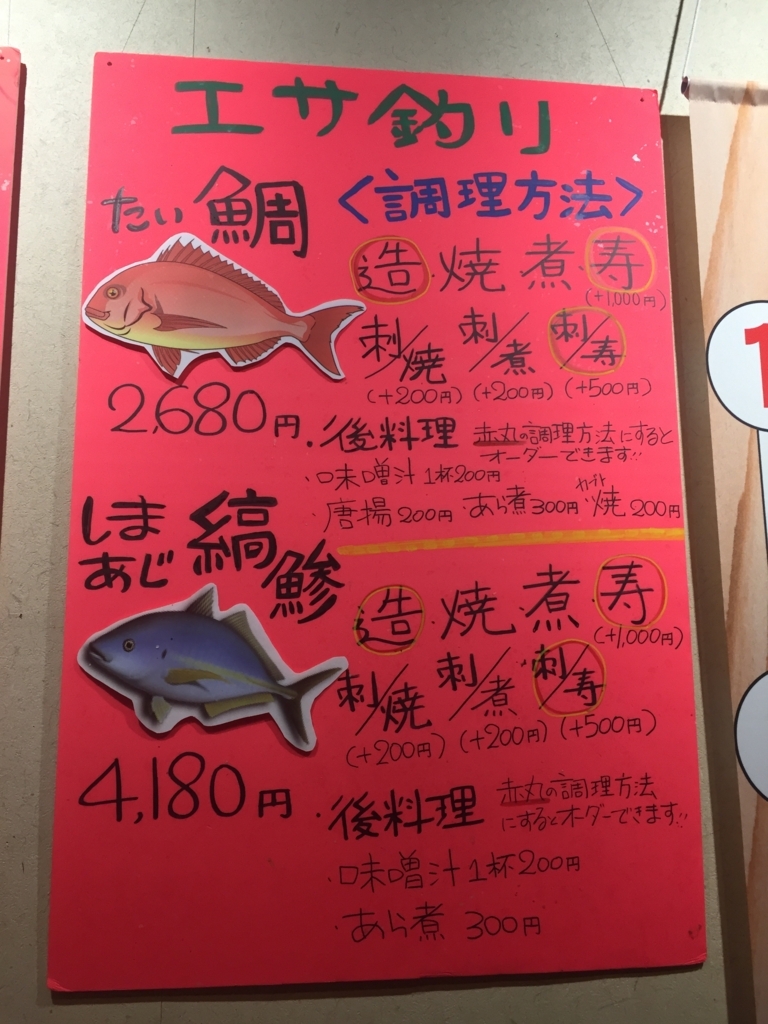 エサ釣り
たい 鯛 <調理方法>
造・焼・煮・寿
(+1,000円)
刺/焼 刺/煮 刺/寿
(+200円) (+200円) (+500円)
2,680円
・後料理 赤丸の調理方法にすると
オーダーできます!!
・味噌汁 1杯200円
・唐揚200円 ・あら煮300円 ・カブト焼200円
しま
あじ 縞鯵
造・焼・煮・寿
(+1,000円)
刺/焼 刺/煮 刺/寿
(+200円) (+200円) (+500円)
4,180円
・後料理 赤丸の調理方法
にするとオーダーできます!!
・味噌汁1杯200円
・あら煮 300円
1